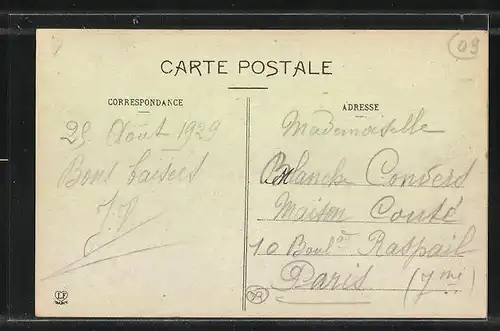 09
CARTE POSTALE
CORRESPONDANCE
ADRESSE
25 Août 1929
Bons baisers
J.P
Mademoiselle
Blanche Convers
Maison Couté
10 Boul.d Raspail
Paris (7me)